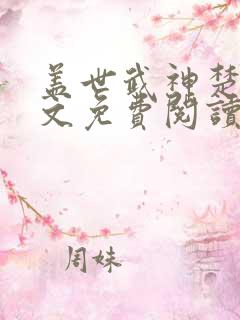 盖世武神楚
文免費閱讀
周妹